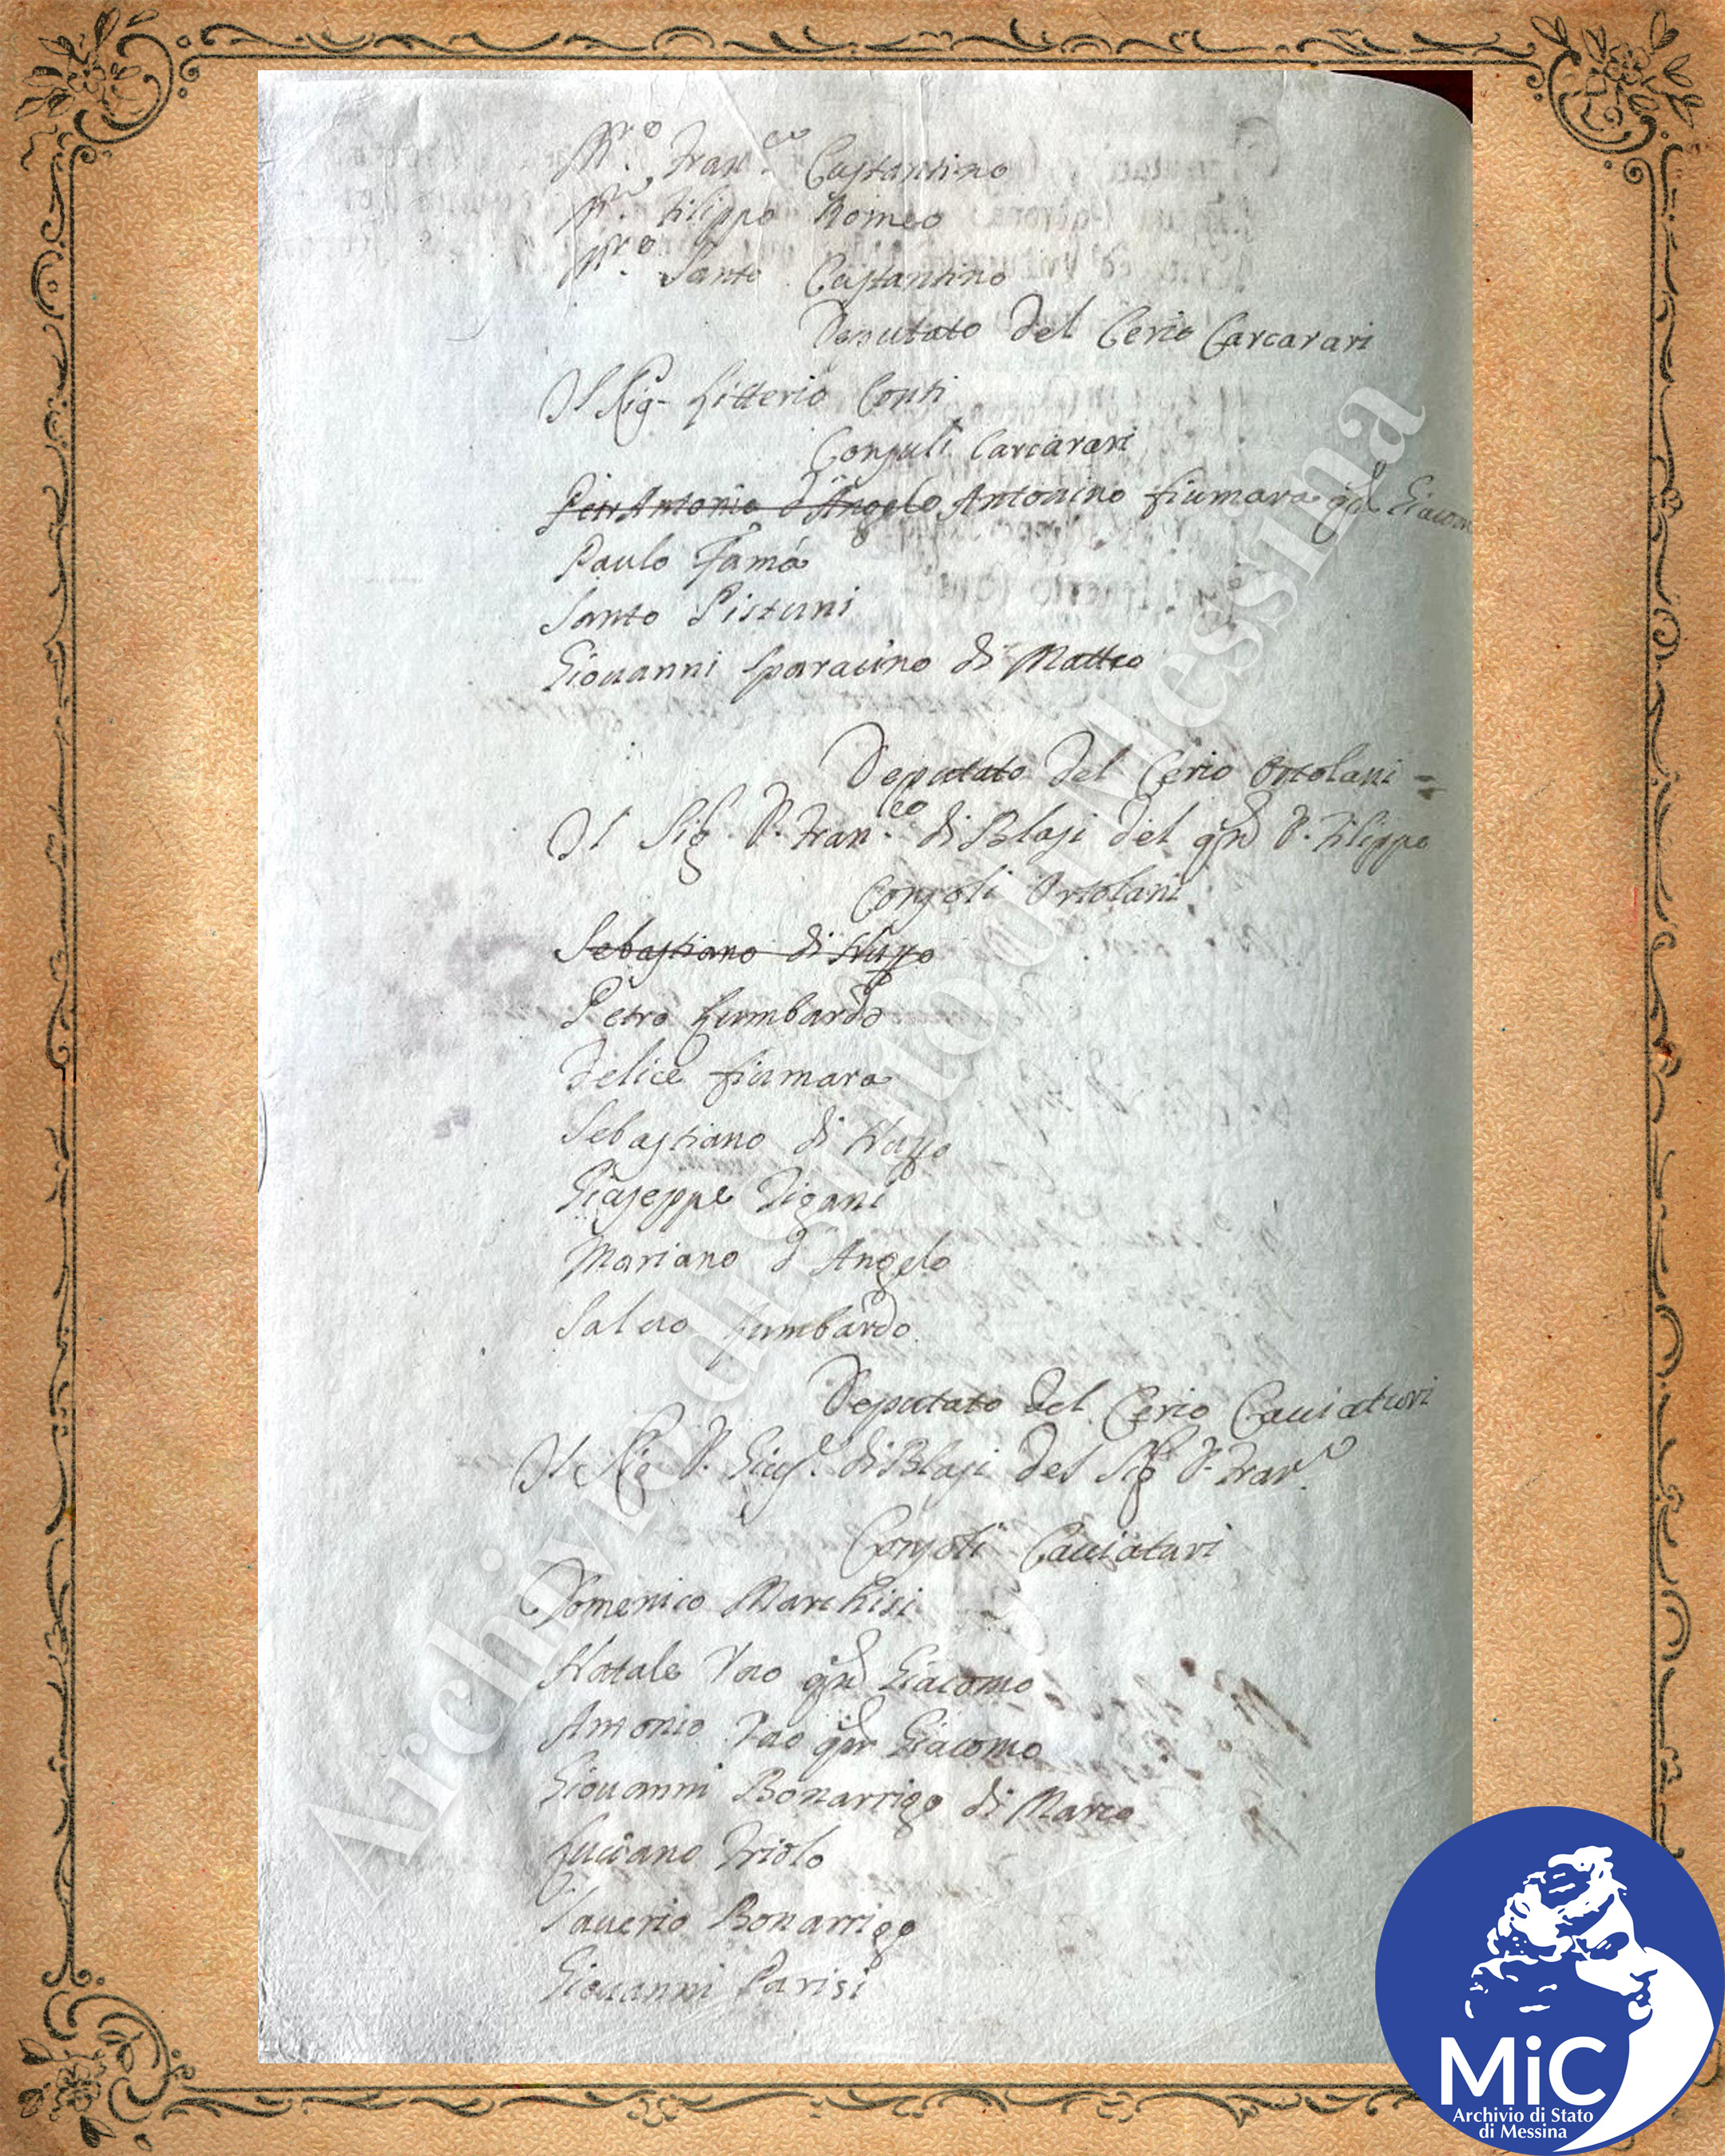 M.ro Fran.co Costantino
M.ro Filippo Romeo
M.ro Santo Costantino
Deputato del Cerio Carcarari
Il Sig.r Litterio Conti
Consuli Carcarari
Petr'Antonio d'Angelo Antonino Fiumara qd Giacomo
Paulo Famà
Santo Pistuni
Giovanni Sparacino di Matteo
Deputato del Cerio Ortolani =
Il Sig.r D. Fran.co di Blasi del qnd D. Filippo
Consoli Ortolani
Sebastiano di
Petro Lumbardo
Felice Fiumara
Sebastiano di
Giuseppe Zigani
Mariano d'Angelo
Salvo Lumbardo
Deputato del Cerio Cacciaturi
Il Sig.r D. Gius.e di Blasi del Sig.r D. Fran.co
Consoli Cacciaturi
Domenico Marchisi
Natale qnd Giacomo
Antonio qnd Giacomo
Giovanni Bonarrigo di Marco
Luciano Triolo
Saverio Bonarrigo
Giovanni Parisi
Archivio di Stato di Messina
MiC
Archivio di Stato
di Messina